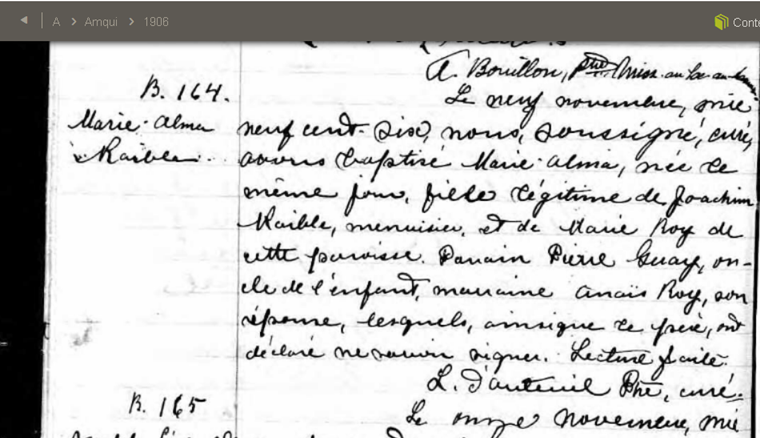 A > Amqui > 1906
Conte
A. Bouillon, Ptre Miss. au
B. 164.
Marie-Alma
Raible.
Le neuf novembre, mil
neuf cent-six, nous, soussigné, curé,
avons baptisé Marie-Alma, née le
même jour, fille légitime de Joachim
Raible, menuisier, et de Marie Roy de
cette paroisse. Parrain Pierre Guay, on-
cle de l'enfant, marraine Anaïs Roy, son
épouse, lesquels, ainsi que le père, ont
déclaré ne savoir signer. Lecture faite.
L. d'Auteuil Ptre, curé.
B. 165
Le onze novembre, mil